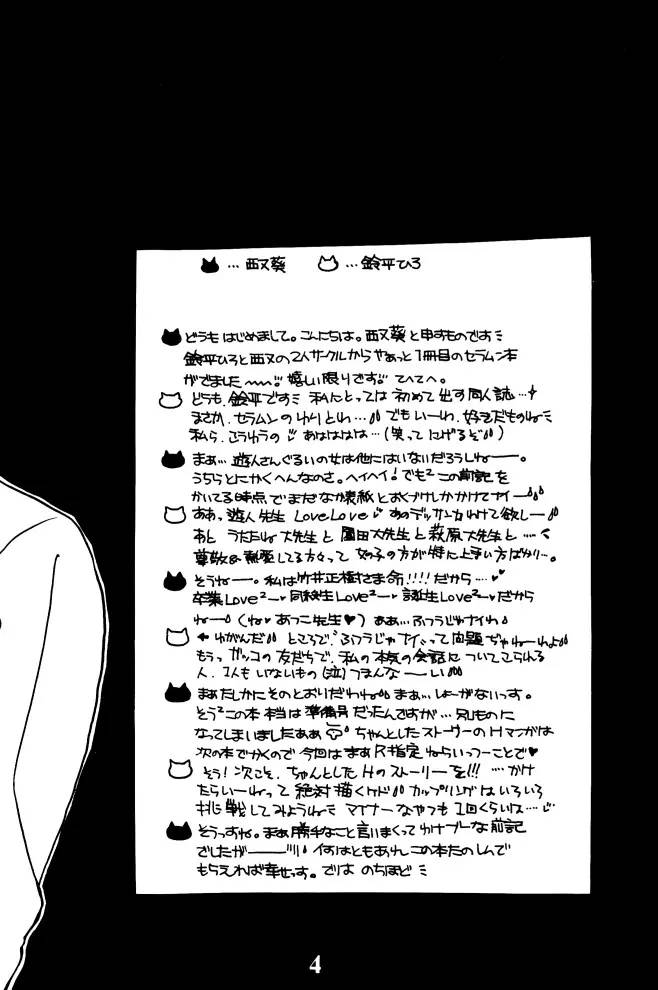 …西又葵 …鈴平ひろ
どうもはじめまして。こんにちは。西又葵と申すものです
鈴平ひろと西又の2人サークルからやぁっと1冊目のセラムン本
がでました〜〜!!嬉しい限りです!!てへてへ。
どうも、鈴平です 私にとっては初めて出す同人誌…
まさか、セラムンのやりとれ… でもいーわ、好きだものね
私ら、こうゆうの あははははは…(笑ってにげるぞ)
まぁ…遊人さんぐるいの女は他にはいないだろうしねー。
うちらとにかくへんなのさ。ヘイヘイ!でも²この前記を
かいてる時点でまだな が紙とおくづけしかかけてナイー
ああっ遊人先生LoveLove あのデッサン力わけて欲しー
あと うたたね大先生と 園田大先生と 萩原大先生と……
尊敬&熱愛してる方々って 女の子の方が特に上手い方ばかり…。
そうねー。私は竹井正樹さま命!!!!だから…♥
卒業Love²ー♥同級生Love²ー♥誕生Love²ーだから
ねー(ねあつこ先生♥)ああ…ふつうじゃナイわ
←ゆがんだ ところで、ふつうじゃナイって問題ぢゃねーわよ
もうっガッコの友だちで、私の本気の会話についてこられる
人、1人もいないもの(泣)つまんなーーい
まぁたしかにそのとおりだわね まぁ…しょーがないっす。
そう²この本 本当は準備号だったんですが…  ものに
なってしまいましたああ ちゃんとしたストーリーのHマンガは
次の本でかくので 今回はまあR指定ねらいっつーことで♥
そう!次こそ、ちゃんとしたHのストーリーを!!!…かけ
たらいーねって絶対描くケド カップリングはいろいろ
挑戦してみようね マイナーなやつも1回くらいは…
そうっすね。まあ勝手なこと言いまくってわけプーな前記
でしたがーー!!! 何はともあれこの本たのしんで
もらえれば幸せっす。では のちほど
4